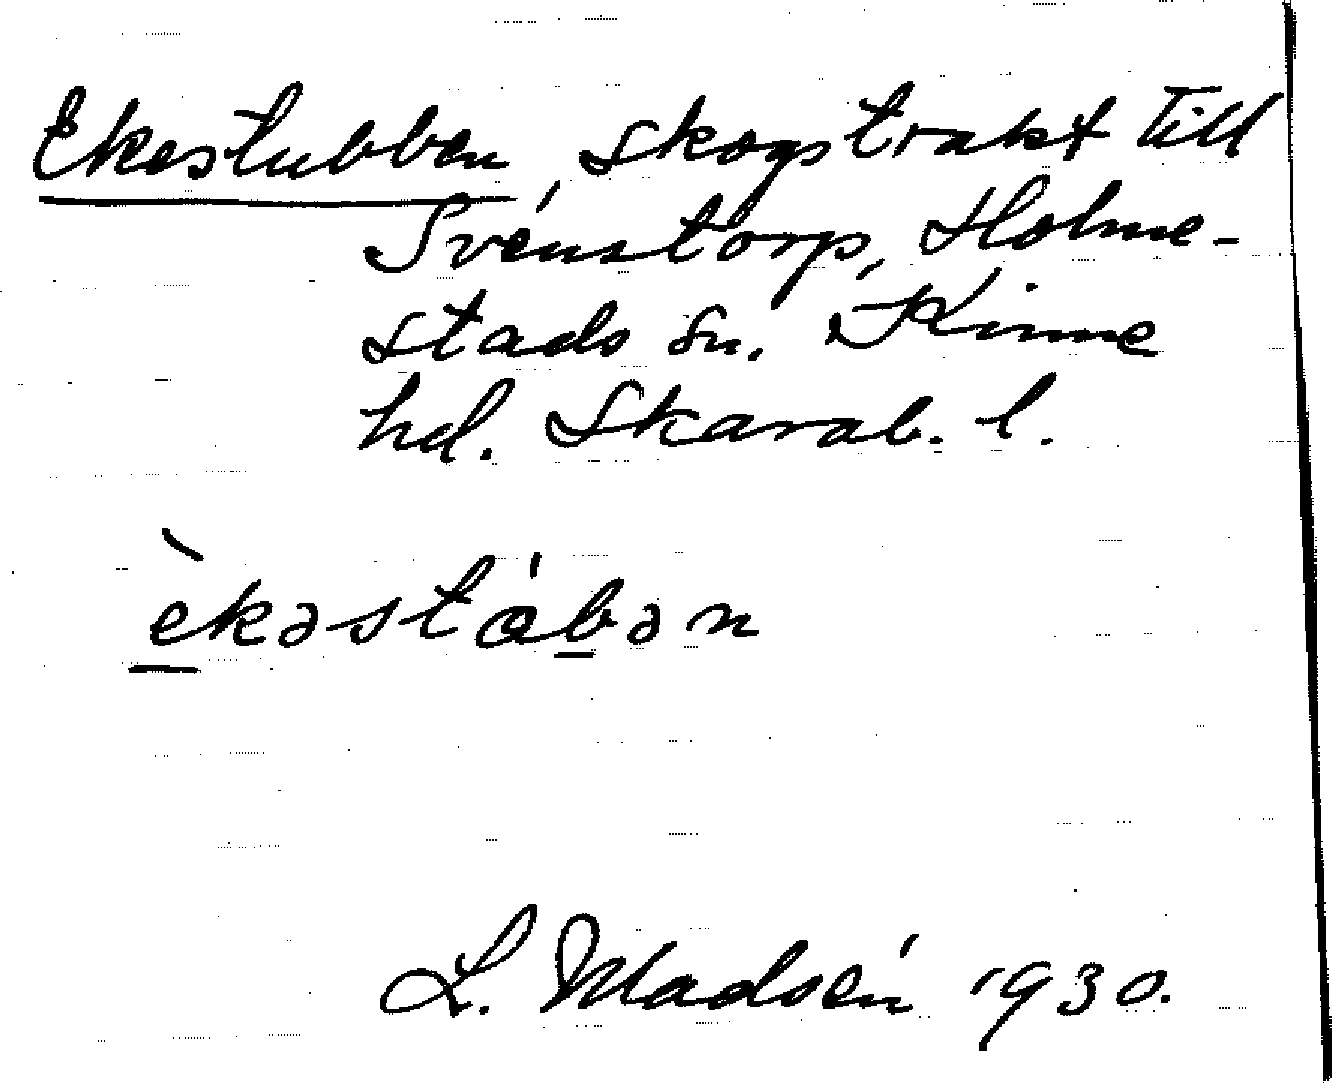 Ekestubben, skogstrakt till
Svenstorp, Holme-
stads sn. Kinne
hd. Skarab. l.
èkəstα̍bən
L. Madsén 1930.